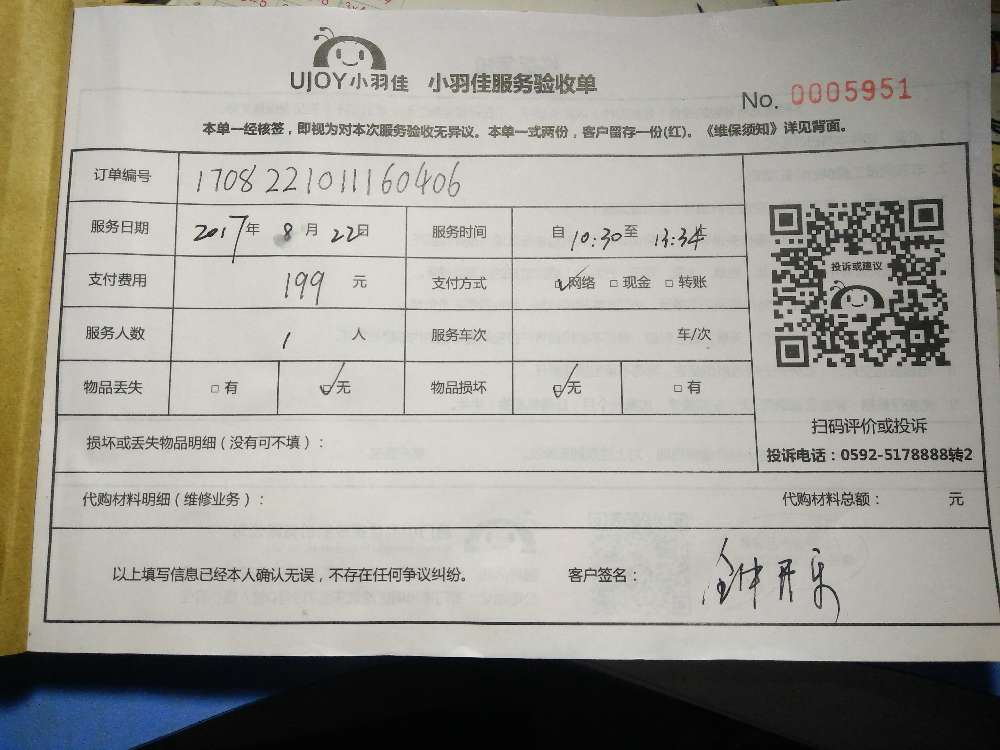 UJOY小羽佳 小羽佳服务验收单
No. 0005951
本单一经核签，即视为对本次服务验收无异议。本单一式两份，客户留存一份(红)。《维保须知》详见背面。
订单编号 1708221011160406
服务日期 2017年 8月 22日 服务时间 自10:30至13:34止
支付费用 199 元 支付方式 ☑网络 □现金 □转账
服务人数 1 人 服务车次 车/次
物品丢失 □有 ☑无 物品损坏 ☑无 □有
投诉或建议
扫码评价或投诉
投诉电话：0592-5178888转2
损坏或丢失物品明细（没有可不填）：
代购材料明细（维修业务）： 代购材料总额： 元
以上填写信息已经本人确认无误，不存在任何争议纠纷。 客户签名：